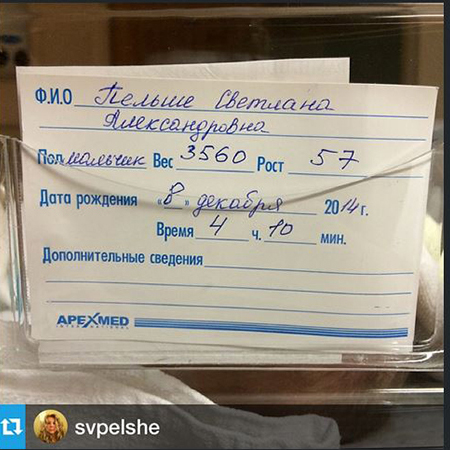 Ф.И.О Пельше Светлана
Александровна
Пол мальчик Вес 3560 Рост 57
Дата рождения «8» декабря 2014 г.
Время 4 ч. 10 мин.
Дополнительные сведения
APEXMED
INTERNATIONAL
svpelshe